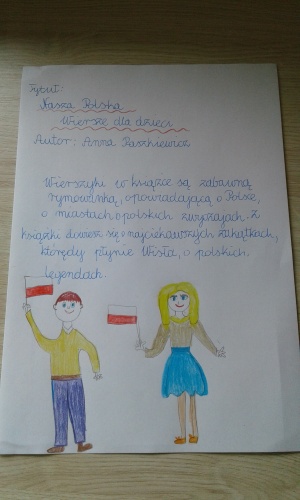 Tytuł:
Nasza Polska
Wiersze dla dzieci
Autor: Anna Paszkiewicz
Wierszyki w książce są zabawną
rymowanką, opowiadającą o Polsce,
o miastach, o polskich zwyczajach. Z
książki dowiesz się o najciekawszych zakątkach,
którędy płynie Wisła, o polskich
legendach.